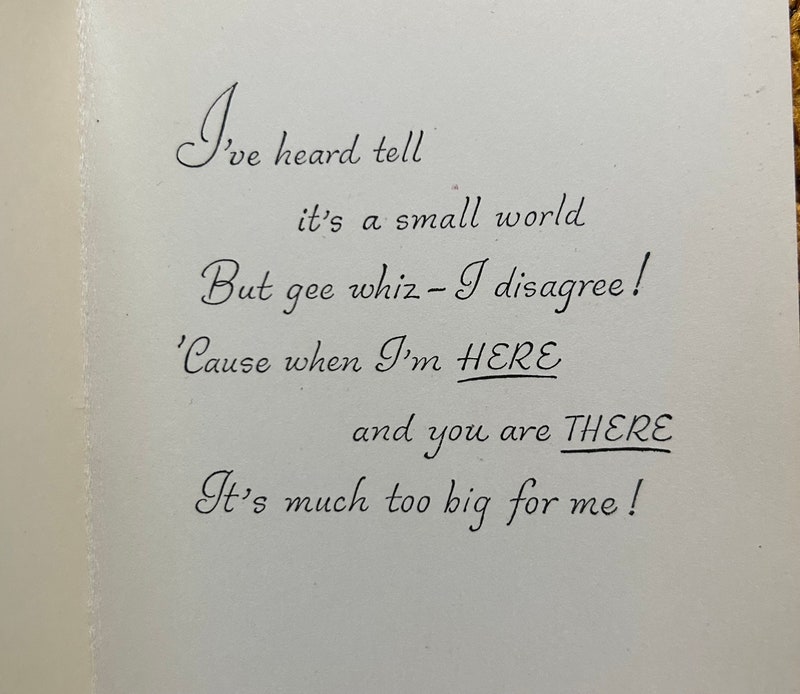 I've heard tell
it's a small world
But gee whiz – I disagree!
'Cause when I'm HERE
and you are THERE
It's much too big for me!